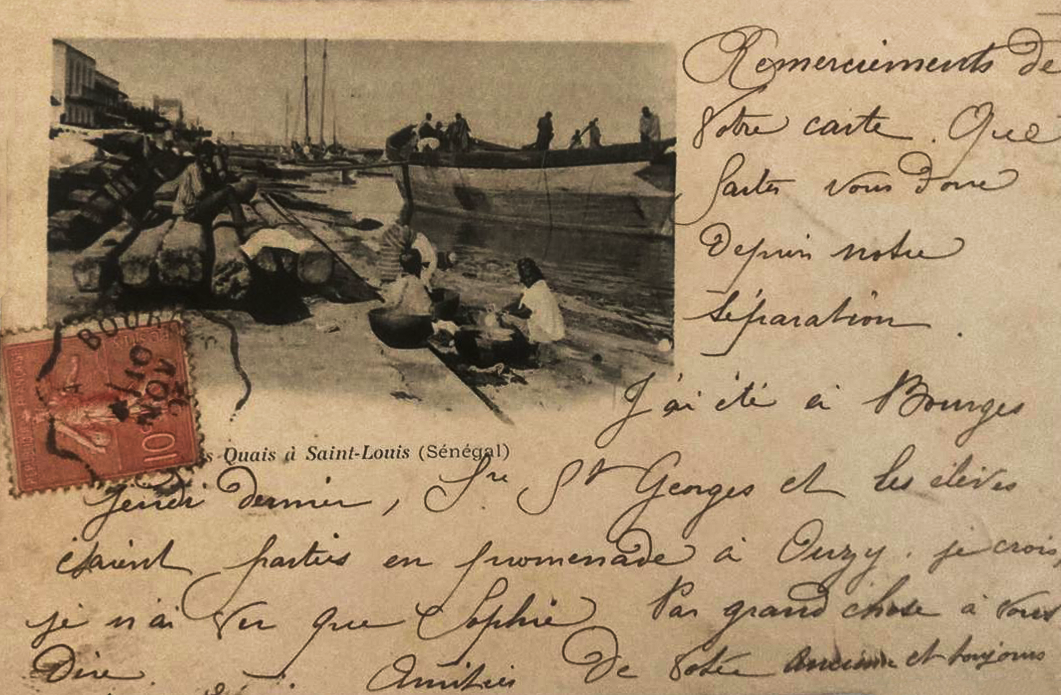 Remerciements de
Votre carte. Que
faites vous donc
Depuis notre
séparation.
J'ai été à Bourges
Quais à Saint-Louis (Sénégal)
jeudi dernier, Sr St Georges et les élèves
étaient parties en promenade à Ouzy. je crois,
je n'ai vu que Sophie Pas grand chose à vous
Dire. Amitiés De Votre ancienne et toujours
BOURG
10
NOV
10